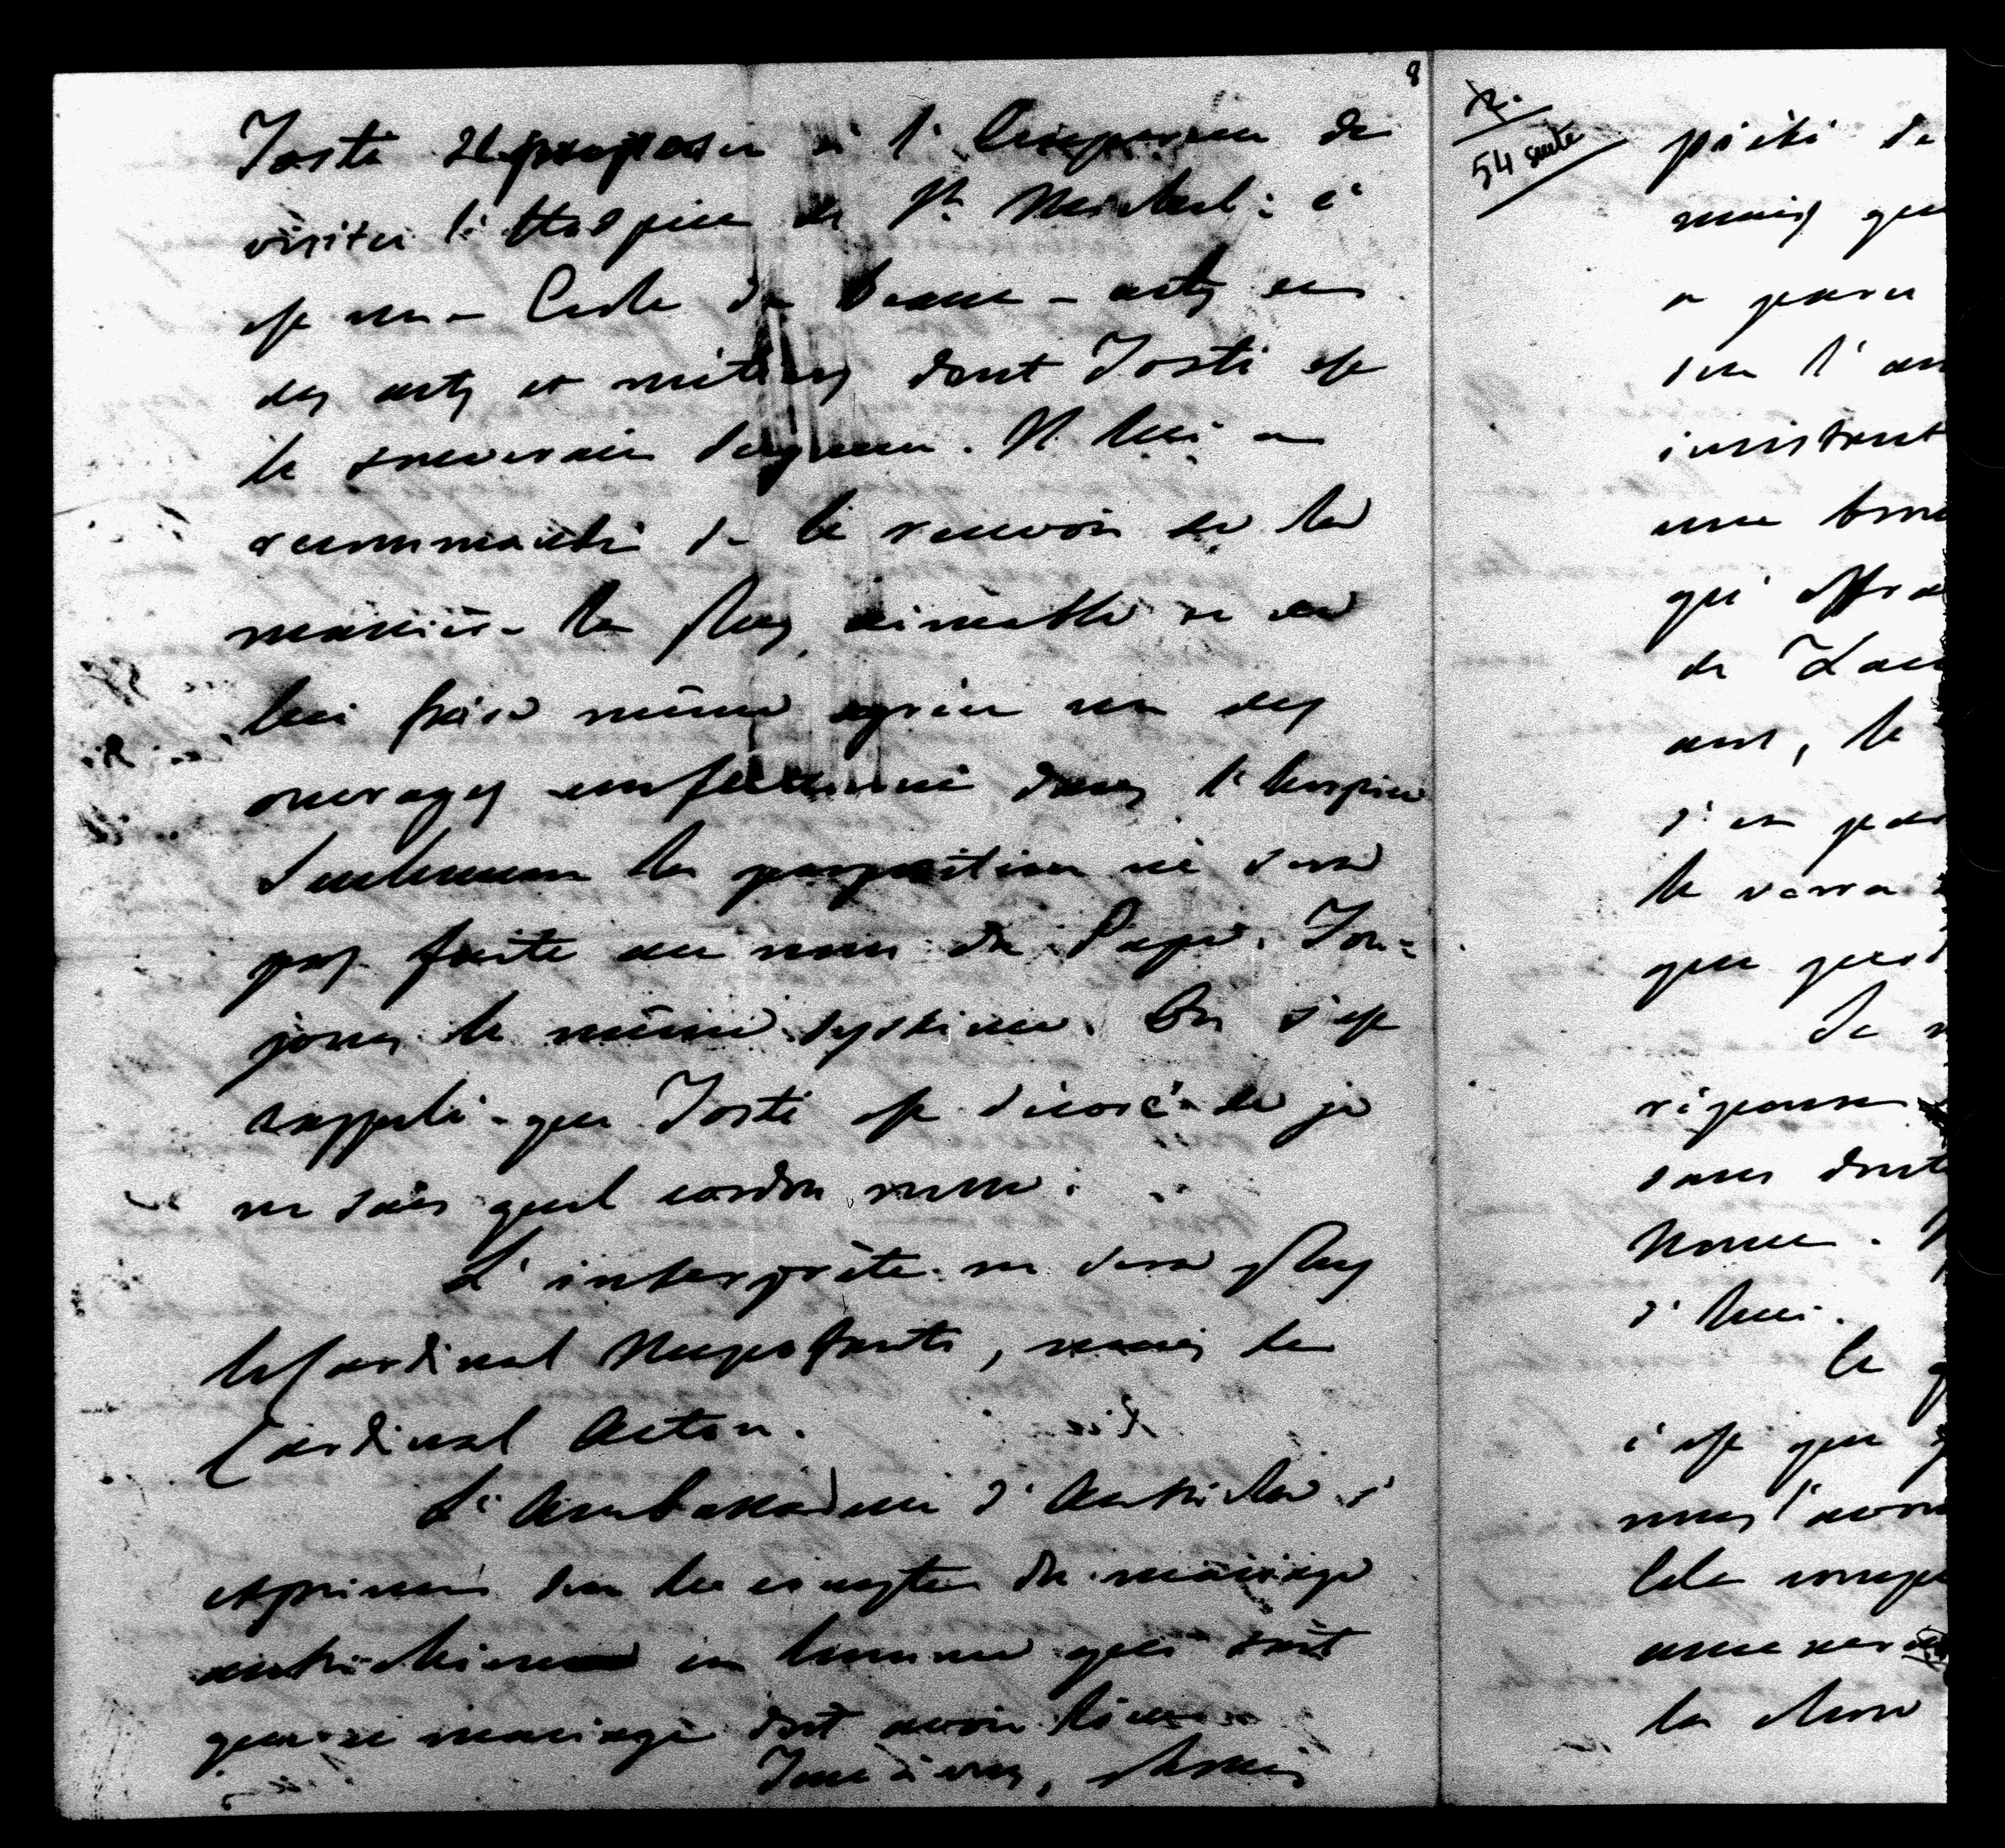 8
Tosti proposera à l'Empereur de
visiter l'Hospice de St. Michel : c'
est une Ecole de beaux-arts ou
des arts et métiers dont Tosti est
le souverain seigneur. Il lui a
recommandé de le recevoir de la
manière la plus aimable et de
lui faire même agréer un des
ouvrages confectionné dans l'hospice
Seulement la proposition ne sera
pas faite au nom du Pape. Tou=
jours le même système. On s'est
rappelé que Tosti est décoré de je
ne sais quel cordon russe.
L'interprète ne sera plus
le Cardinal Mezzofante, mais le
Cardinal Acton.
L'Ambassadeur d'Autriche s'
exprime sur le compte du mariage
autrichien en homme qui sait
que ce mariage doit avoir lieu
Tout à vous,
54 suite
piété de
mais que
a
sur l'
insistant
une
qui
de
ans, le
s'en
le verra
que
Je
réponse
sans doute
Nonce.
d'hui.
Le
c'est que
nous l'avons
la chose